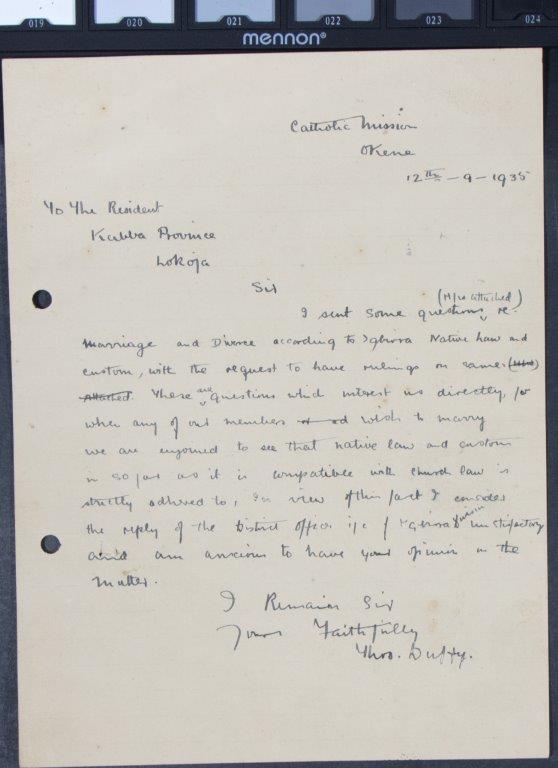 019 020 021 022 023 024
mennon®
Catholic Mission
Okene
12th - 9 - 1935
To The Resident
Kabba Province
Lokoja
Sir
(H/w attached)
I sent some questions re.
Marriage and Divorce according to Igbirra Native Law and
custom, with the request to have rulings on same.
Attached. These are questions which interest us directly, for
when any of our members wish to marry
we are enjoined to see that native law and custom
in so far as it is compatible with church law is
strictly adhered to, In view of this fact I consider
the reply of the District Officer i/c of Igbirra Division unsatisfactory
and am anxious to have your opinion on the
matter.
I Remain Sir
Yours Faithfully
Thos. Duffy.